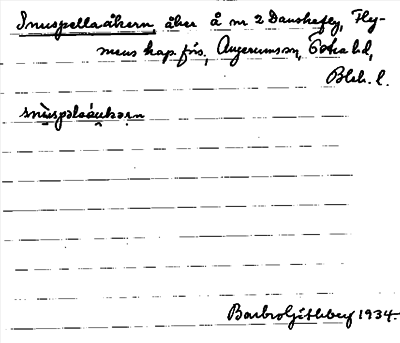 Snuspellaåkern, åker å nr 2 Danskefly, Fly-
mens kap.förs, Augerums sn, Östra hd,
Blek. l.
snùspəlaåukərn
Barbro Göthberg 1934.